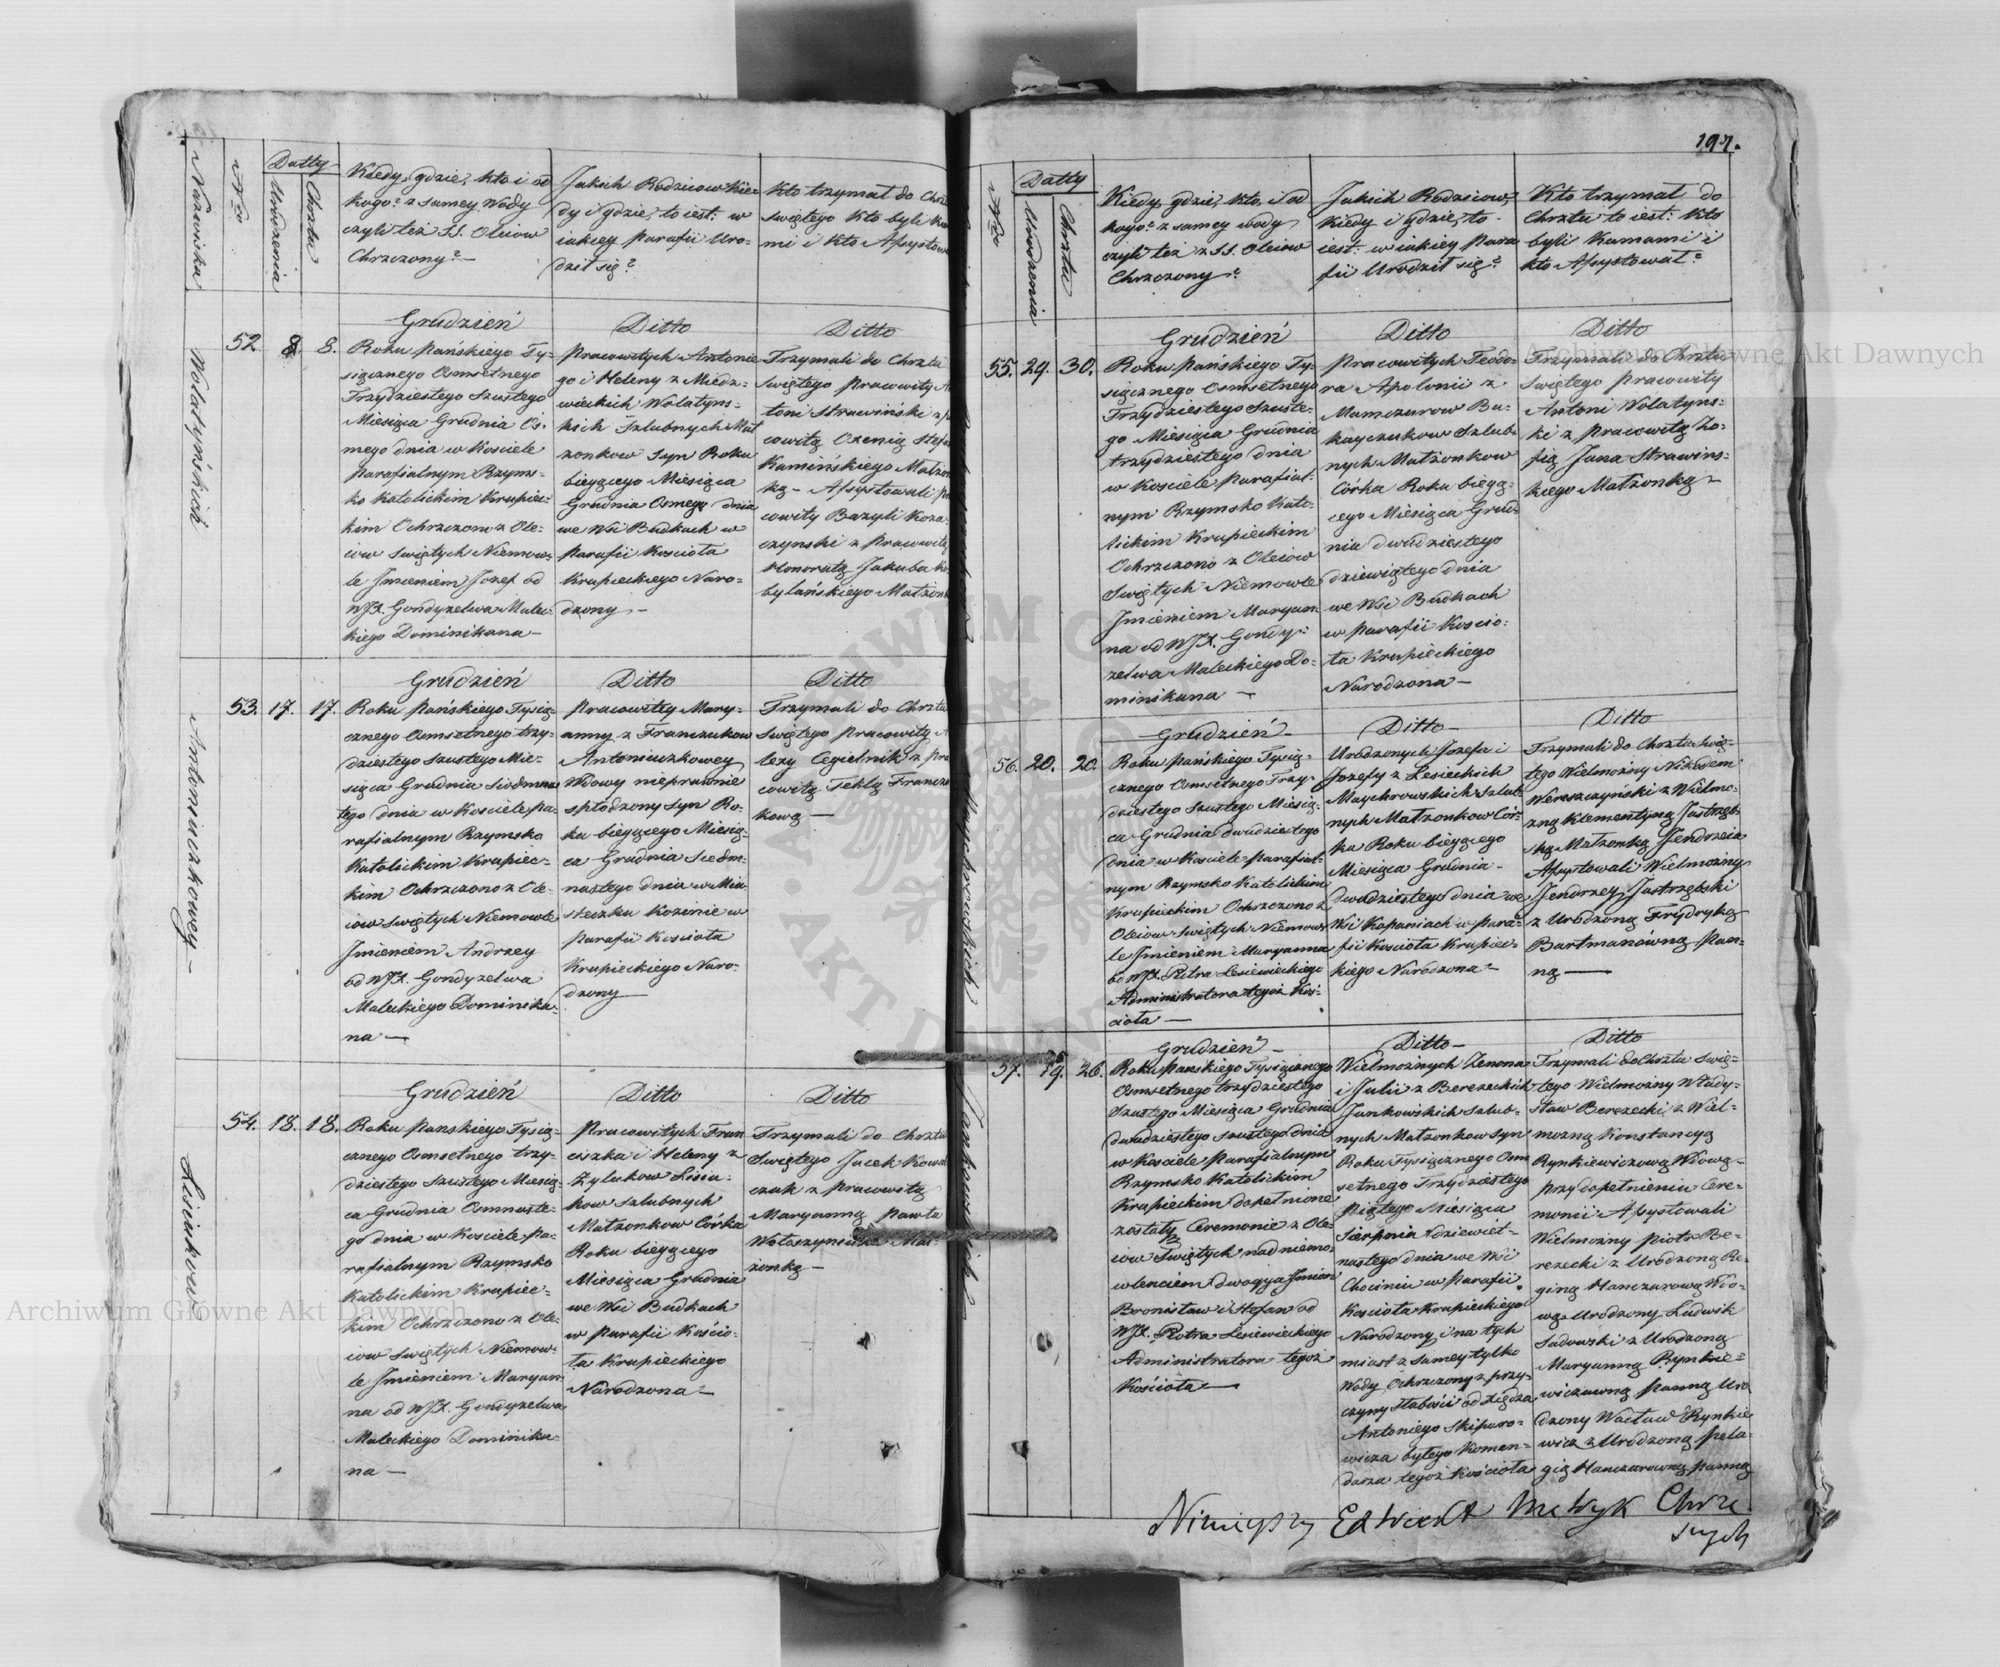 Nazwiska
Nro
Datty
Urodzenia
Chrztu
Kiedy, gdzie, kto i od
kogo? z samey Wody
czyli też SS. Oleiow
Chrzczony?—
Jakich Rodzicow Kie-
dy i gdzie, to iest: w
iakiey Parafii Uro-
dził się?
Kto trzymał do Chrz
Swiętego Kto byli Ku
mi i Kto Assystow
Wołatyńskich
52
8.
8.
Grudzień
Roku Pańskiego Ty-
siącznego Osmsetnego
Trzydziestego Szustego
Miesiąca Grudnia Os-
mego dnia w Kosciele
Parafialnym Rzyms-
ko Katolickim Krupiec-
kim Ochrzczono z Ole-
iow Swiętych Niemow-
le Jmieniem Jozef od
WJX. Gondyzelwa Malec-
kiego Dominikana—
Ditto
Pracowitych Antonie
go i Heleny z Miedz-
wieckich Wołatyns-
kich Szlubnych Mał
zonkow Syn Roku
bieyącego Miesiąca
Grudnia Osmego dnia
we Wsi Budkach w
Parafii Koscioła
Krupieckiego Naro-
dzony—
Ditto
Trzymali do Chrztu
Swiętego Pracowity A
toni Strawiński z Pr
cowitą Ozenią Stefa
Kamińskiego Małzon
ką— Assystowali Pr
cowity Bazyli Koza
czynski z Pracowitą
Honoratą Jakuba Ko
bylańskiego Małzon
Antoniuczkowey—
53.
17.
17.
Grudzień
Roku Pańskiego Tysią-
cznego Osmsetnego trzy-
dziestego Szustego Mie-
siąca Grudnia Siedmnas
tego dnia w Kosciele Pa-
rafialnym Rzymsko
Katolickim Krupiec-
kim Ochrzczono z Ole-
iow Swiętych Niemowle
Jmieniem Andrzey
od WJX. Gondyzelwa
Maleckiego Dominika-
na—
Ditto
Pracowitey Mary-
anny z Franczukow
Antoniuczkowey
Wdowy nieprawnie
spłodzony Syn Ro-
ku bieyącego Miesią-
ca Grudnia Siedm-
nastego dnia w Mia-
steczku Kozinie w
Parafii Koscioła
Krupieckiego Naro-
dzony—
Ditto
Trzymali do Chrztu
Swiętego Pracowity A
lexy Cegielnik z Pra
cowitą Teklą Francz
kową—
Lisiukow
54.
18.
18.
Grudzień
Roku Panskiego Tysią-
cznego Osmsetnego trzy-
dziestego Szustego Miesią-
ca Grudnia Osmnaste-
go dnia w Kosciele Pa-
rafialnym Rzymsko
Katolickim Krupiec-
kim Ochrzczono z Ole-
iow Swiętych Niemow-
le Jmieniem Maryan-
na od WJX. Gondyzelwa
Maleckiego Dominika-
na—
Ditto
Pracowitych Fran
ciszka i Heleny z
Zylukow Lisiu-
kow szlubnych
Małzonkow Córka
Roku bieyącego
Miesiąca Grudnia
we Wsi Budkach
w Parafii Koscio-
ła Krupieckiego
Narodzona—
Ditto
Trzymali do Chrztu
Swiętego Jacek Kowal
czuk z Pracowitą
Maryanną Pawła
Wołoszynuka Mał-
zonką—
197.
Nro
Datty
Urodzenia
Chrztu
Kiedy, gdzie, kto, i od
kogo? z samey wody
czyli też z SS. Oleiow
Chrzczony?
Jakich Rodzicow,
Kiedy i gdzie, to-
iest: w iakiey Para
fii Urodził się?
Kto trzymał do
Chrztu to iest: Kto
byli Kumami i
kto Assystował?
55.
29.
30.
Grudzień
Roku Pańskiego Ty-
siącznego Osmsetnego
Trzydziestego Szuste-
go Miesiąca Grudnia
trzydziestego dnia
w Kosciele Parafial-
nym Rzymsko Kato-
lickim Krupieckim
Ochrzczono z Oleiow
Swiętych Niemowle
Jmieniem Maryan-
na od WJX. Gondy-
zelwa Maleckiego Do-
minikana—
Ditto
Pracowitych Teodo-
ra Apolonii z
Mamczurow Bu-
kayczukow Szlub-
nych Małzonkow
Córka Roku bieyą-
cego Miesiąca Grud-
nia dwudziestego
dziewiątego dnia
we Wsi Budkach
w Parafii Koscio-
ła Krupieckiego
Narodzona—
Ditto
Trzymali do Chrztu
Swiętego Pracowity
Antoni Wołatyns-
ki z Pracowitą Zo-
fią Jana Strawins-
kiego Małzonką—
Maychrowskich
56.
20.
20.
Grudzień—
Roku Pańskiego Tysią-
cznego Osmsetnego Trzy-
dziestego Szustego Miesią-
ca Grudnia dwudziestego
dnia w Kosciele Parafial-
nym Rzymsko Katolickim
Krupieckim Ochrzczono z
Oleiow Swiętych Niemow-
le Jmieniem Maryanna
od WJX. Piotra Lesiewickiego
Administratora tegoż Koś-
cioła—
Ditto—
Urodzonych Jozefa i
Jozefy z Lesieckich
Maychrowskich Szlub-
nych Małzonkow Cór-
ka Roku bieyącego
Miesiąca Grudnia-
dwudziestego dnia we
Wsi Kopaniach w Para-
fii Koscioła Krupiec-
kiego Narodzona—
Ditto
Trzymali do Chrztu Swię-
tego Wielmożny Nikodem
Wereszczyński z Wielmo-
żną Klementyną Jastrzęb-
ską Małzonką Jendrzeia
Assystowali Wielmożny
Jendrzey Jastrzębski
z Urodzoną Frydryką
Bartmanówną Pan-
ną—
Jankowskich
57.
19.
26.
Grudzień—
Roku Pańskiego Tysiącznego
Osmsetnego trzydziestego
Szustego Miesiąca Grudnia
dwudziestego szustego dnia
w Kosciele Parafialnym
Rzymsko Katolickim
Krupieckim dopełnione
zostały Ceremonie z Ole-
iow Swiętych nad niemo-
wlenciem dwoyga Jmion
Bronisław i Stefan od
WJX. Piotra Lesiewickiego
Administratora tegoż
Kościoła—
Ditto—
Wielmożnych Zenona
i Julii z Berezeckich
Jankowskich szlub-
nych Małzonkow Syn
Roku Tysiącznego Osm
setnego Trzydziestego
piątego Miesiąca
Sierpnia dziewięt-
nastego dnia we Wsi
Chocinin w Parafii
Koscioła Krupieckiego
Narodzony, i na tych
miast z samey tylko
Wody Ochrzczony z przy-
czyny słabości od Xiędza
Antoniego Skiparo-
wicza byłego Komen-
darza tegoż Kościoła
Ditto
Trzymali do Chrztu Swię-
tego Wielmożny Włady-
sław Berezecki z Wiel-
możną Konstancyą
Rynkiewiczową Wdową-
przy dopełnieniu Cere-
monii Assystowali
Wielmożny Piotr Be-
rezecki z Urodzoną Re-
giną Hanczarową Wdo-
wą Urodzony Ludwik
Sadowski z Urodzoną
Maryanną Rynkie-
wiczówną Panną Uro-
dzony Wacław Rynkie
wicz z Urodzoną Pela-
gią Hanczarówną Panną
Metryk
Archiwum Główne Akt Dawnych
Archiwum Główne Akt Dawnych